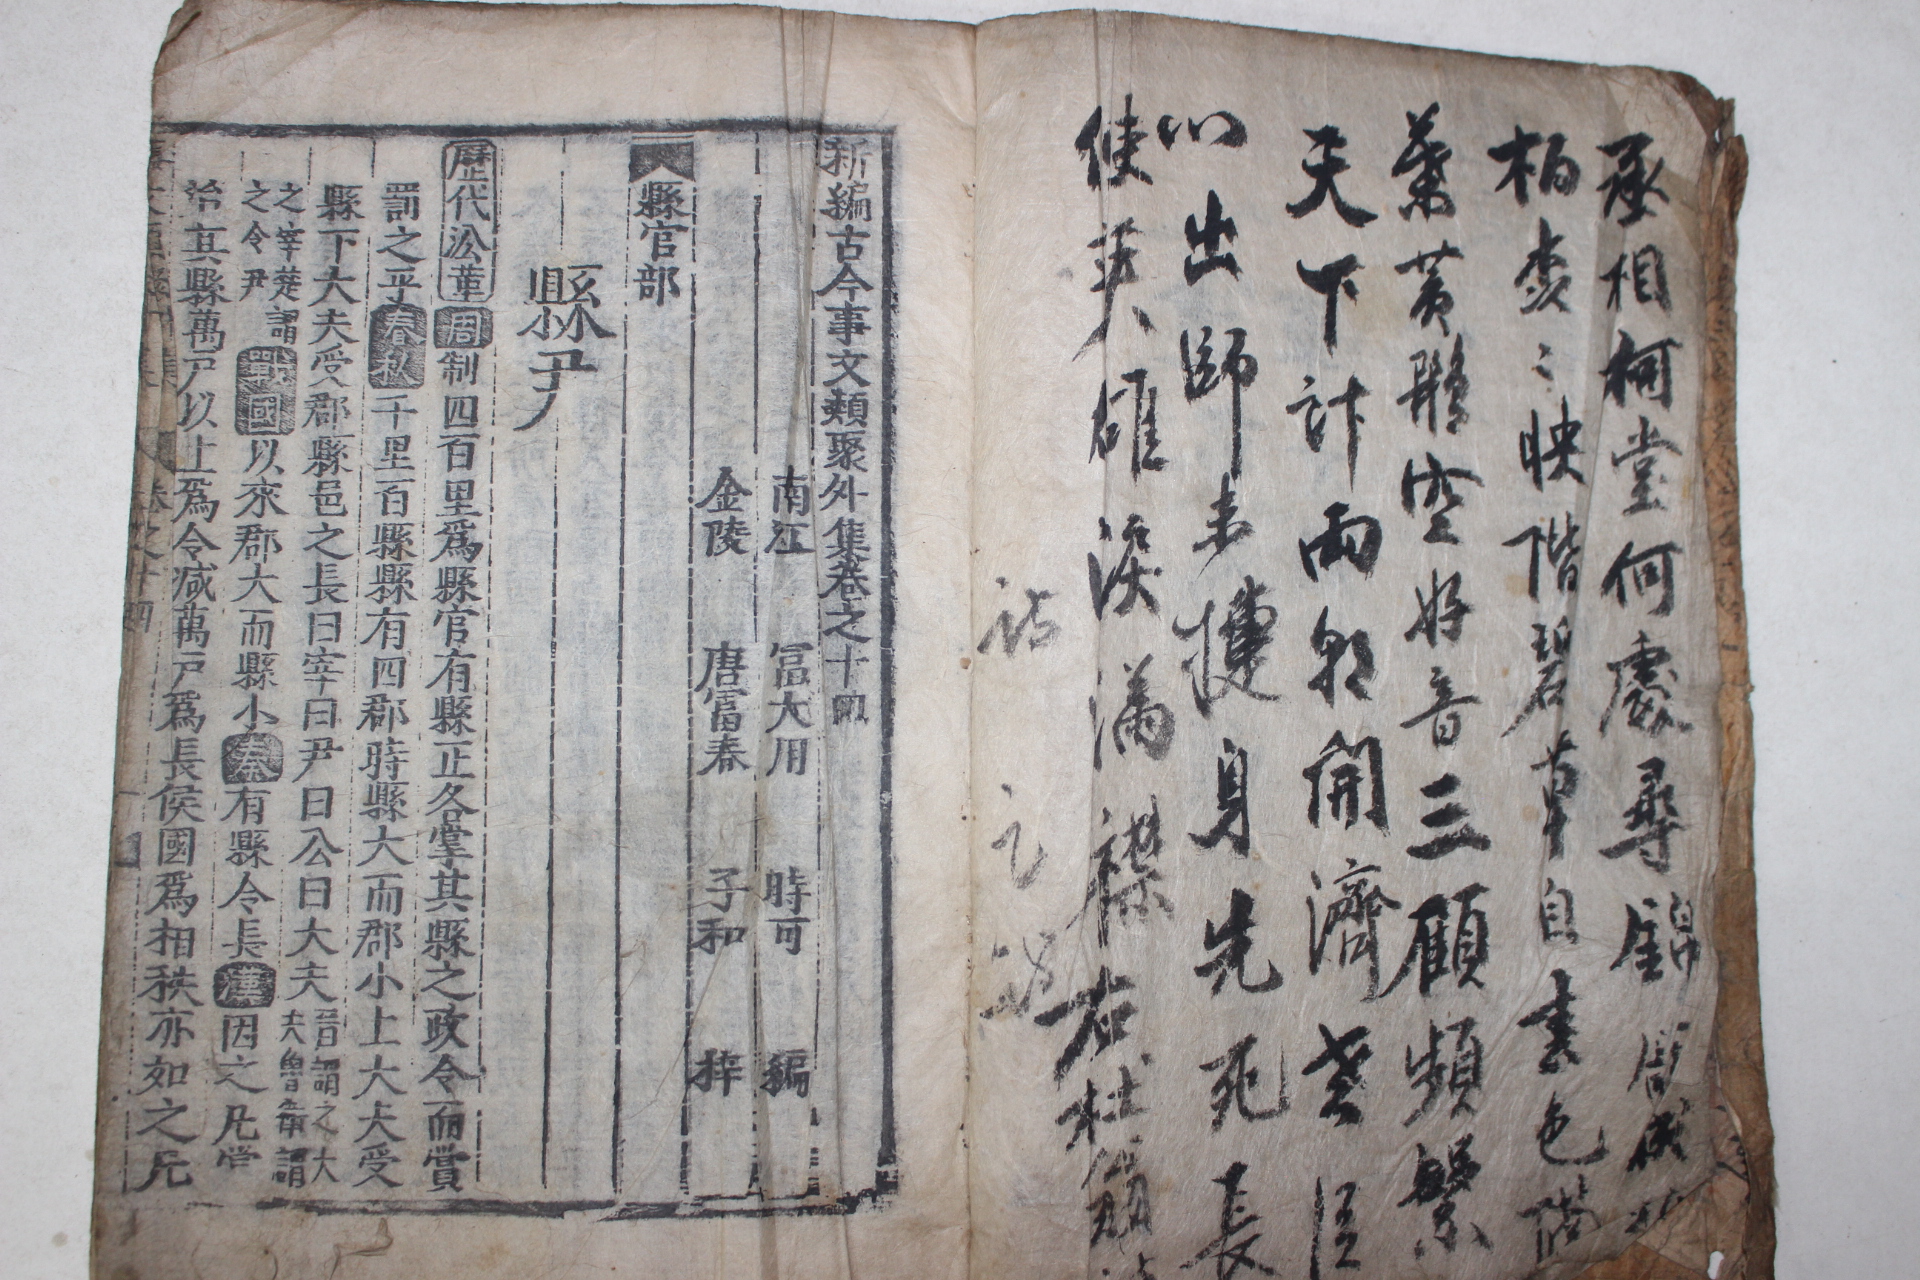 丞相祠堂何處尋錦官城外
柏森〻映階碧草自春色隔
葉黃鸝空好音三顧頻繁
天下計兩朝開濟老臣
心出師未捷身先死長
使英雄淚滿襟右杜
新編古今事文類聚外集卷之十四
南江 富大用 時可 編
金陵 唐富春 子和 梓
縣官部
縣尹
歷代沿革周制四百里爲縣官有縣正各掌其縣之政令而賞
罰之平春秋千里百縣縣有四郡時縣大而郡小上大夫受
縣下大夫受郡縣邑之長曰宰曰尹曰公曰大夫晉謂之大夫魯衛謂
之宰楚謂之令尹戰國以來郡大而縣小秦有縣令長漢因之凡嘗
治其縣萬戶以上爲令減萬戶爲長侯國爲相秩亦如之凡
卷之十四